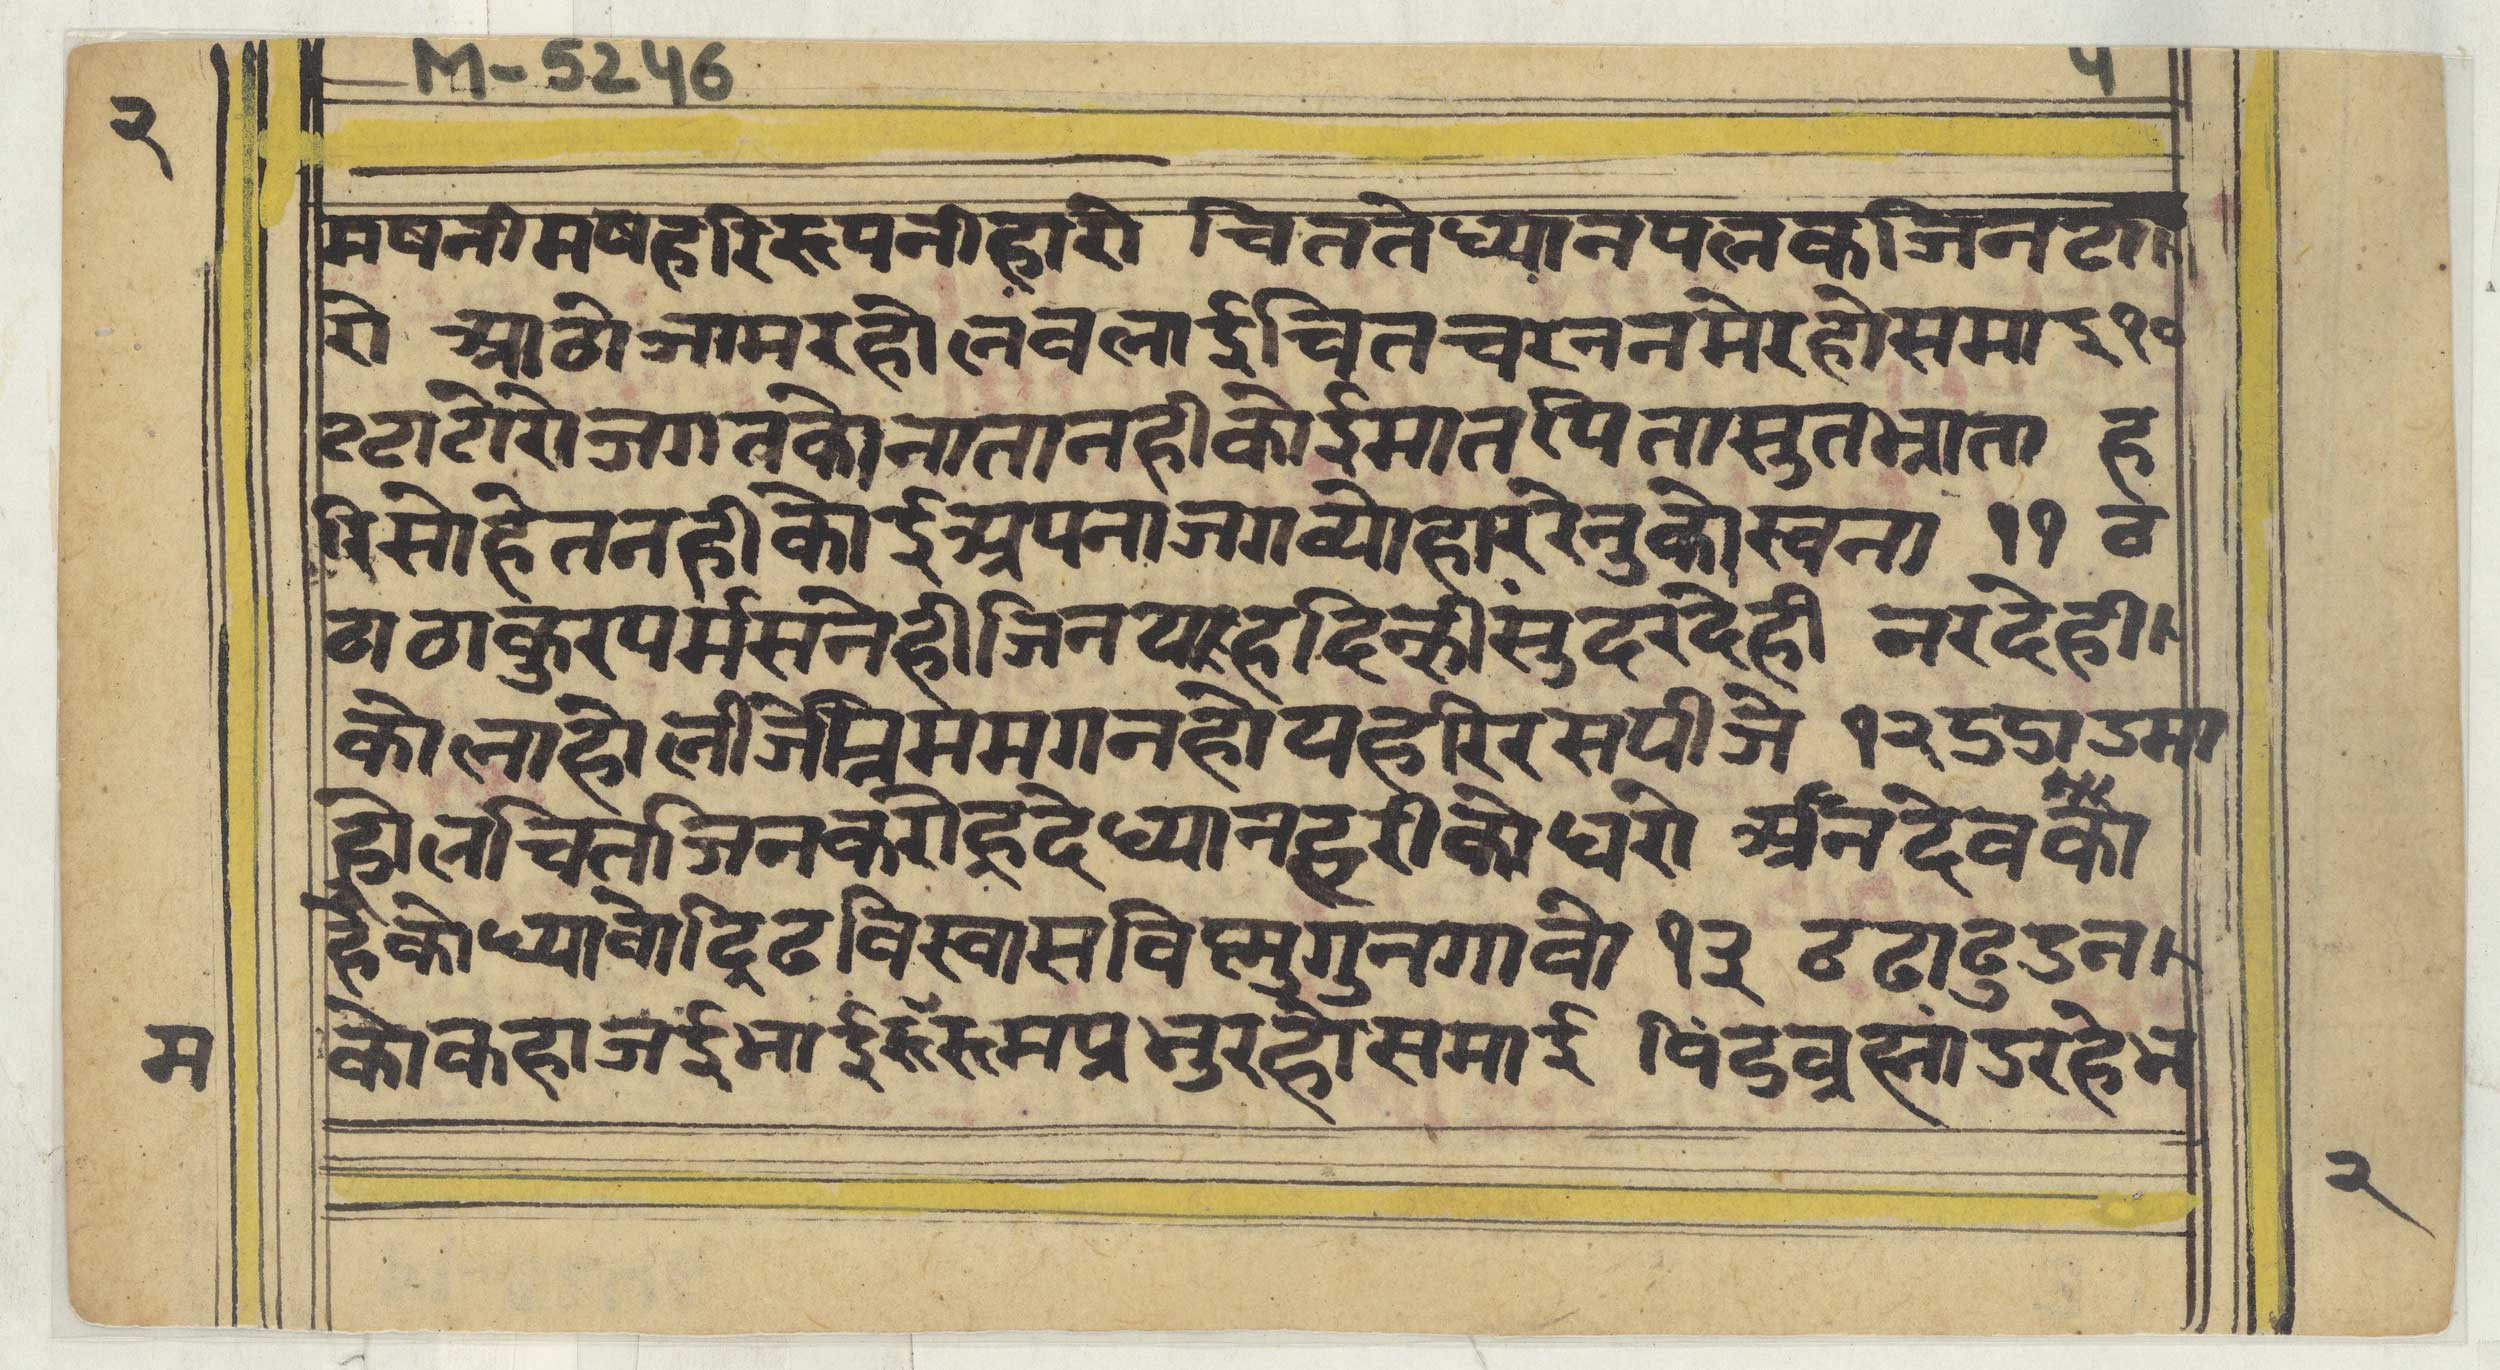 M-5246 ५
२
मषनीमषहरिरूपनीहारो चिततेध्यानपलकजिनटा
रो आठोजामरहोलवलाईचितचरननमेरहोसमाइ१०
टटाटोरोजगतकोनातानहीकोईमातपितासुतभ्राता ह
रिसोहेतनहीकोईअपनाजगव्योहाररेनुकोस्वना ११ ठ
ठाठाकुरपर्मसनेहीजिनयहदिन्हीसुंदरदेही नरदेही
कोलाहोलीजेप्रेममगनहोयहरिरसपीजे १२डडाडमा
होलचितजिनकरोह्रदेध्यानहरीकोधरो अंनदेवकौ
हेकोध्यावोद्रिढविस्वासविष्णुगुनगावो १३ ढढाढुडन
म कोकहाजईभाईरूंरूमप्रभुरहोसमाई पिंडव्रह्मांडरहेभ
२